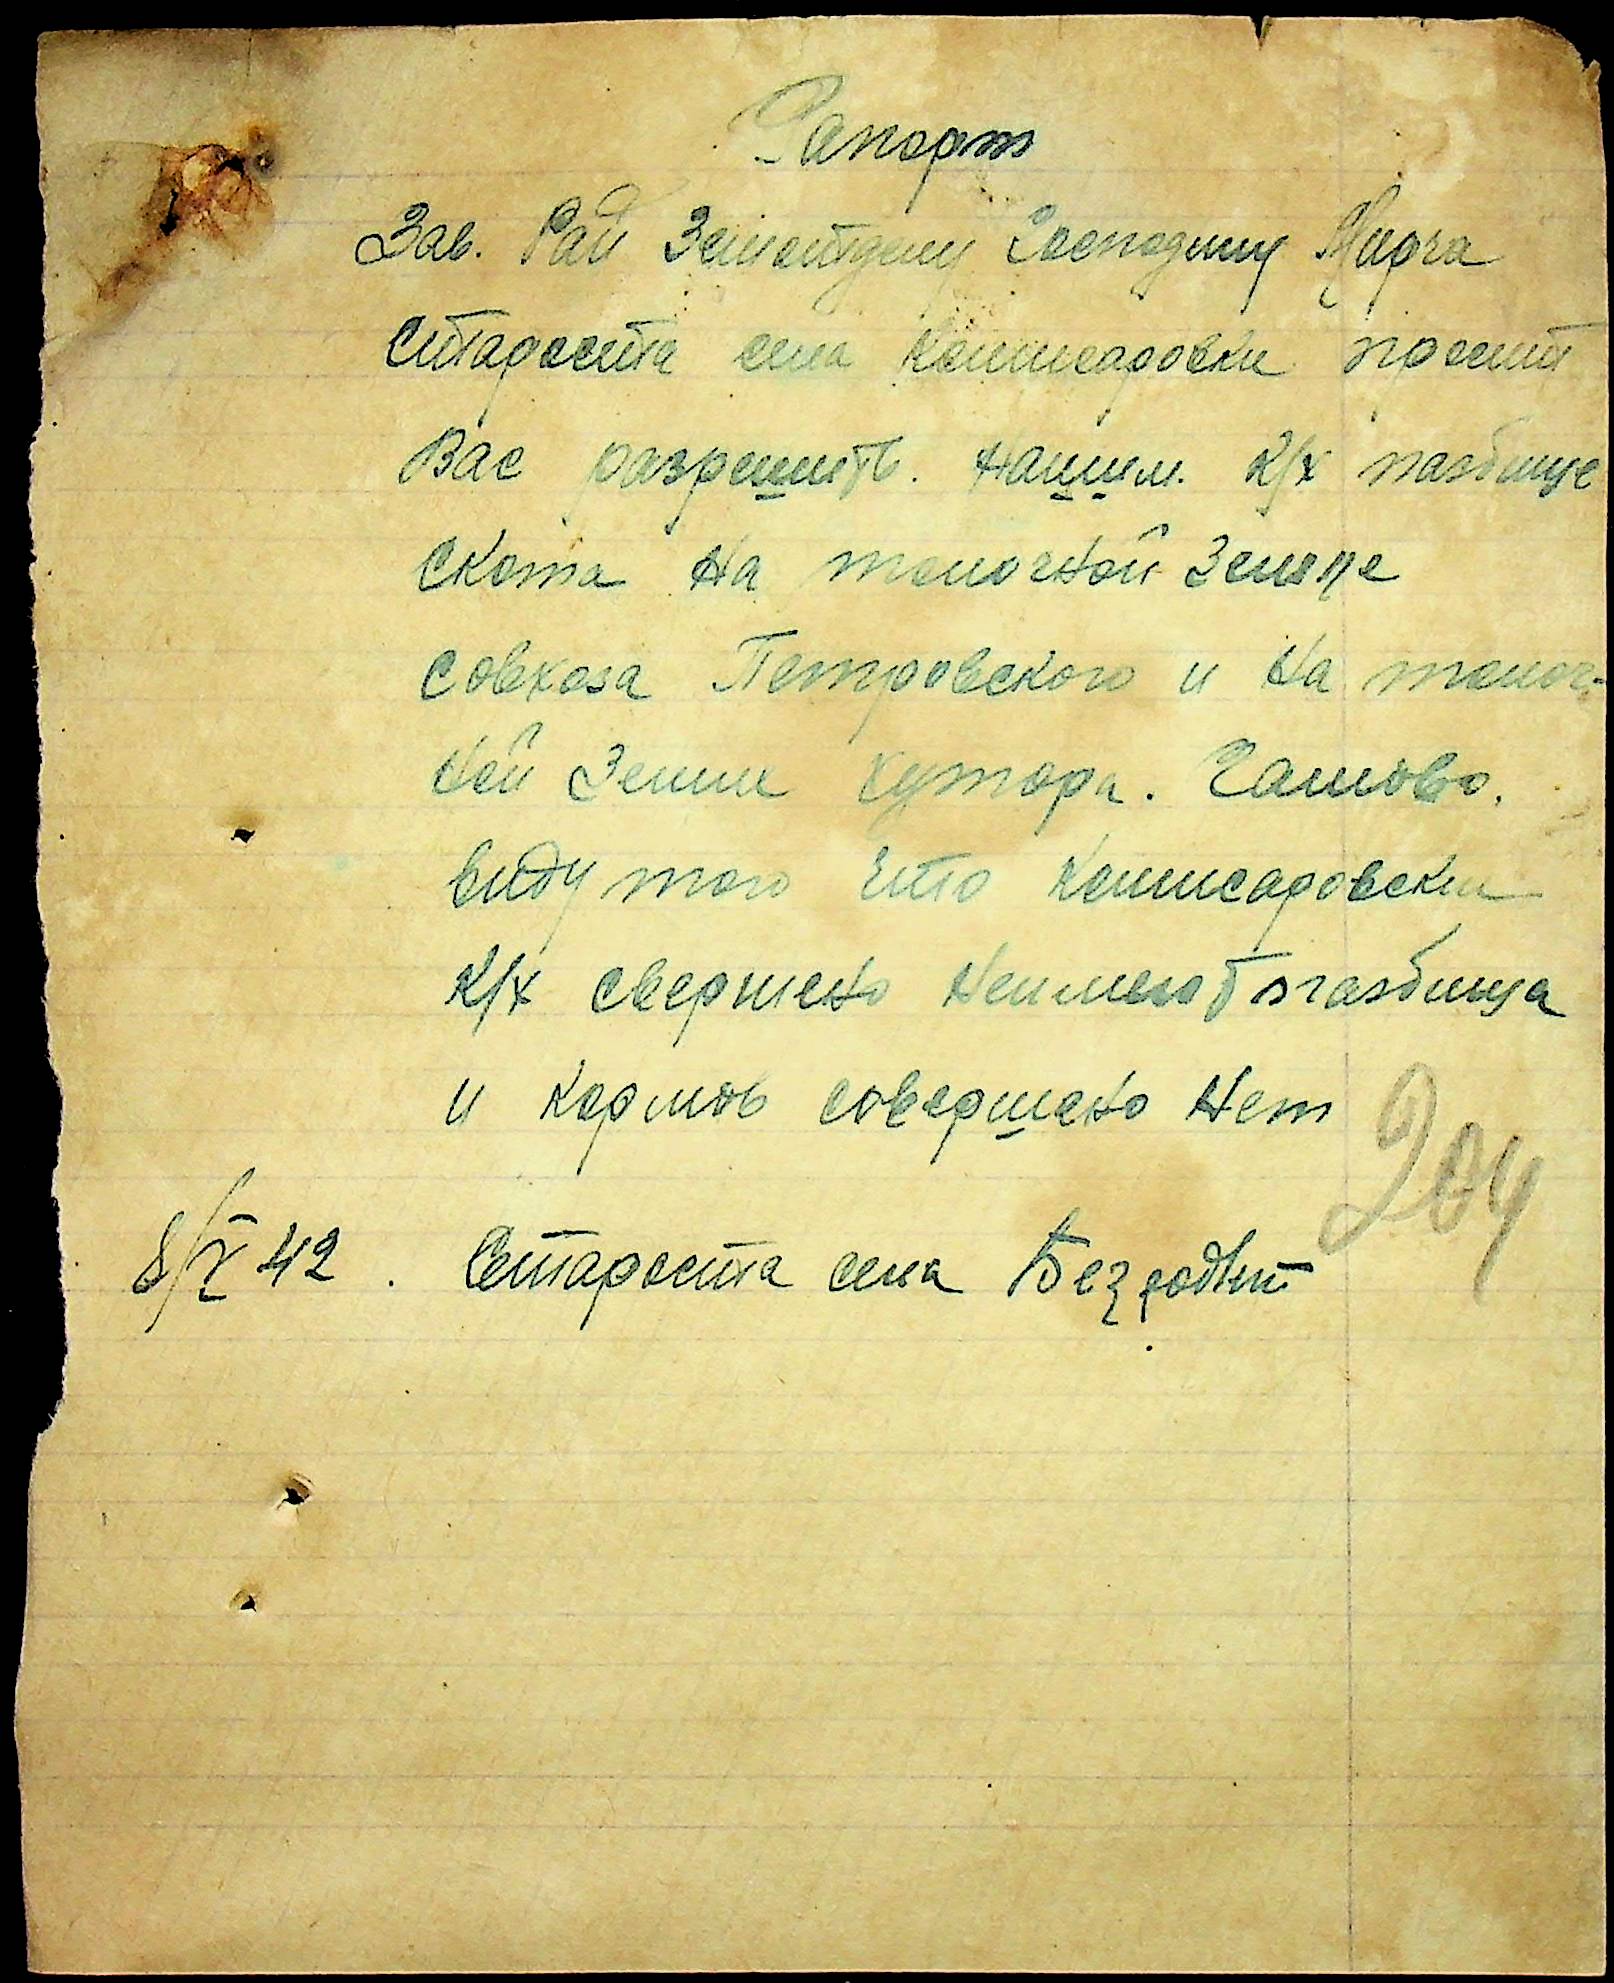 Рапорт
Зав. Рай Земотделу Господину Жирга
Староста села Комисаровки просит
Вас разрешить. нашим. К/х пазбище
скота на толочной Земле
совхоза Петровского и на толоч-
ной Земли хутора. Чамово.
виду того что Комисаровски
К/х свершено неимеют пазбища
и кормов совершено нет
204
8/X 42. Староста села